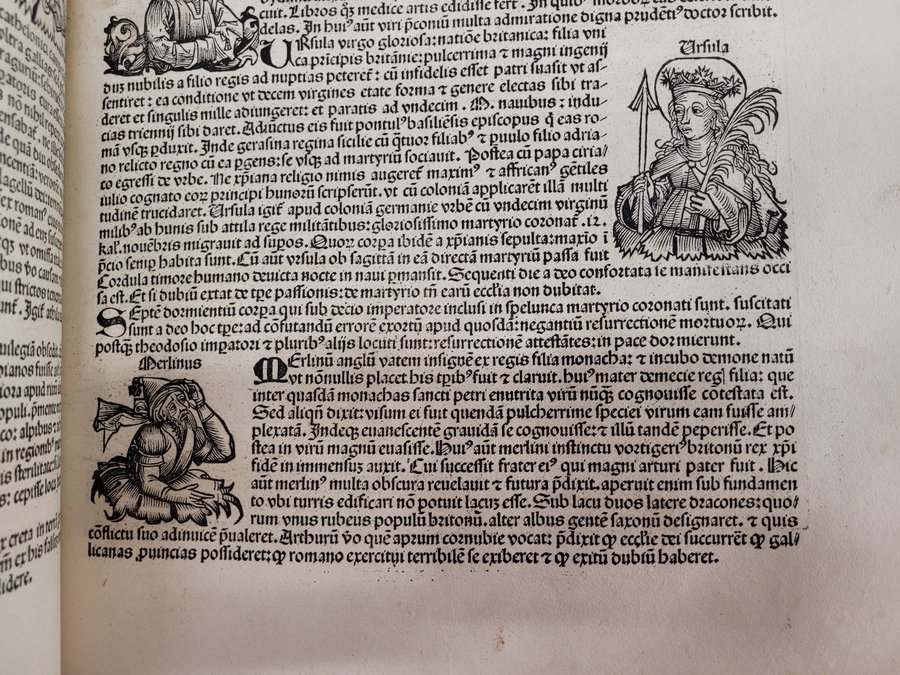 cuit. Libros qʒ medice artis edidisse fert. In quibꝰ
delas. In huiꝰ aūt viri p̄conium multa admiratione digna prudētiꝰ doctor scribit.
Ursula
URsula virgo gloriosa: natiōe britanica: filia vni
ca pricipis britānie: pulcerrima et magni ingenij
dum nubilis a filio regis ad nuptias peteret̄: cū infidelis esset patri suasit vt as-
sentiret: ea conditione vt decem virgines etate forma ⁊ genere electas sibi tra-
deret et singulis mille adiungeret: et paratis ad vndecim. M. nauibus: indu-
cias triennij sibi daret. Adiūctus eis fuit pontulꝰ basiliēsis episcopus q̇ eas ro-
mam vsqʒ pduxit. Inde gerasina regina sicilie cū q̇tuor filiabꝰ ⁊ puulo filio adria-
no relicto regno cū ea pgens: se vsqʒ ad martyriū sociauit. Postea cū papa ciria/
co egressi de vrbe. Ne xp̄iana religio nimis augeret̄ maximꝰ ⁊ affricanꝰ gētiles
iulio cognato eoꝝ principi hunorū scripserūt. vt cū coloniā applicarēt illā multi
tudinē trucidaret. Ursula igit̄ apud coloniā germanie vrbē cū vndecim virginū
milibꝰ ab hunis sub attila rege militātibus: gloriosissimo martyrio coronat̄ .12.
kaꝉ. nouēbris migrauit ad supos. Quoꝝ corpa ibidē a xp̄ianis sepulta: maxīo i
p̄cio semp habita sunt. Cū aūt vrsula ob sagittā in eā directā martyriū passa fuit
Cordula timore humano deuicta nocte in naui pmansit. Sequenti die a deo confortata se manifestans occi
sa est. Et si dubiū extat de tpe passionis: de martyrio tn̄ earū eccl̄ia non dubitat.
SEptē dormientiū corpa qui sub decio imperatore inclusi in spelunca martyrio coronati sunt. suscitati
sunt a deo hoc tpe: ad cōfutandū errorē exortū apud quosdā: negantiū resurrectionē mortuoꝝ. Qui
postqʒ theodosio impatori ⁊ pluribꝰ alijs locuti sunt: resurrectionē attestātes: in pace dormierunt.
Merlinus
MErlinū anglū vatem insignē ex regis filia monacha: ⁊ incubo demone natū
vt nōnullis placet his tpibꝰ fuit ⁊ claruit. huiꝰ mater demecie reg filia: que
inter quasdā monachas sancti petri enutrita virū nūqʒ cognouisse cōtestata est.
Sed aliqn̄ dixit: visum ei fuit quendā pulcherrime speciei virum eam suisse am/
plexatā. Indeqʒ euanescentē grauidā se cognouisse: ⁊ illū tandē peperisse. Et po
stea in virū magnū euasisse. Huiꝰ aūt merlini instinctu vortigerꝰ britonū rex xp̄i
fidē in immensuʒ auxit. Cui successit frater eiꝰ qui magni arturi pater fuit. Hic
aūt merlinꝰ multa obscura reuelauit ⁊ futura p̄dixit. aperuit enim sub fundamen
to vbi turris edificari nō potuit lacuʒ esse. Sub lacu duos latere dracones: quo/
rum vnus rubeus populū britonū. alter albus gentē saxonū designaret. ⁊ quis
cōflictu suo adinuicē p̄ualeret. Arthurū v̊o quē aprum cornubie vocat: p̄dixit ꝙ eccl̄ie dei succurrēt ꝙ gal/
licanas ꝓuincias possideret: ꝙ romano exercitui terribilē se exiberet ⁊ ꝙ exitū dubiū haberet.